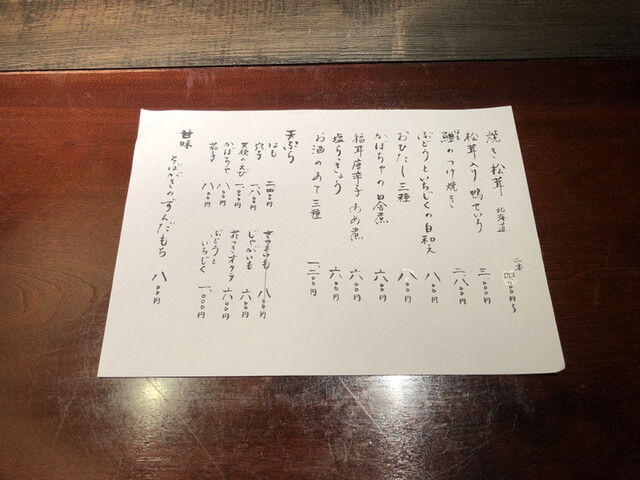 焼き松茸 北海道 二本 四、〇〇〇円〜
松茸入り 鴨せいろ 三、〇〇〇円
鱧のつけ焼き 二、八〇〇円
ぶどうといちじくの白和え 八〇〇円
おひたし三種 八〇〇円
かぼちゃの田舎煮 六〇〇円
福耳唐辛子 あめ煮 六〇〇円
塩らっきょう 六〇〇円
お酒のあて三種 一、二〇〇円
天ぷら
はも 二、四〇〇円
穴子
天使のえび
かぼちゃ 八〇〇円
茄子 八〇〇円
さつまいも 八〇〇円
じゃがいも 六〇〇円
花つきオクラ 六〇〇円
ぶどうと
いちじく 一、〇〇〇円
甘味
そばがきのずんだもち 八〇〇円